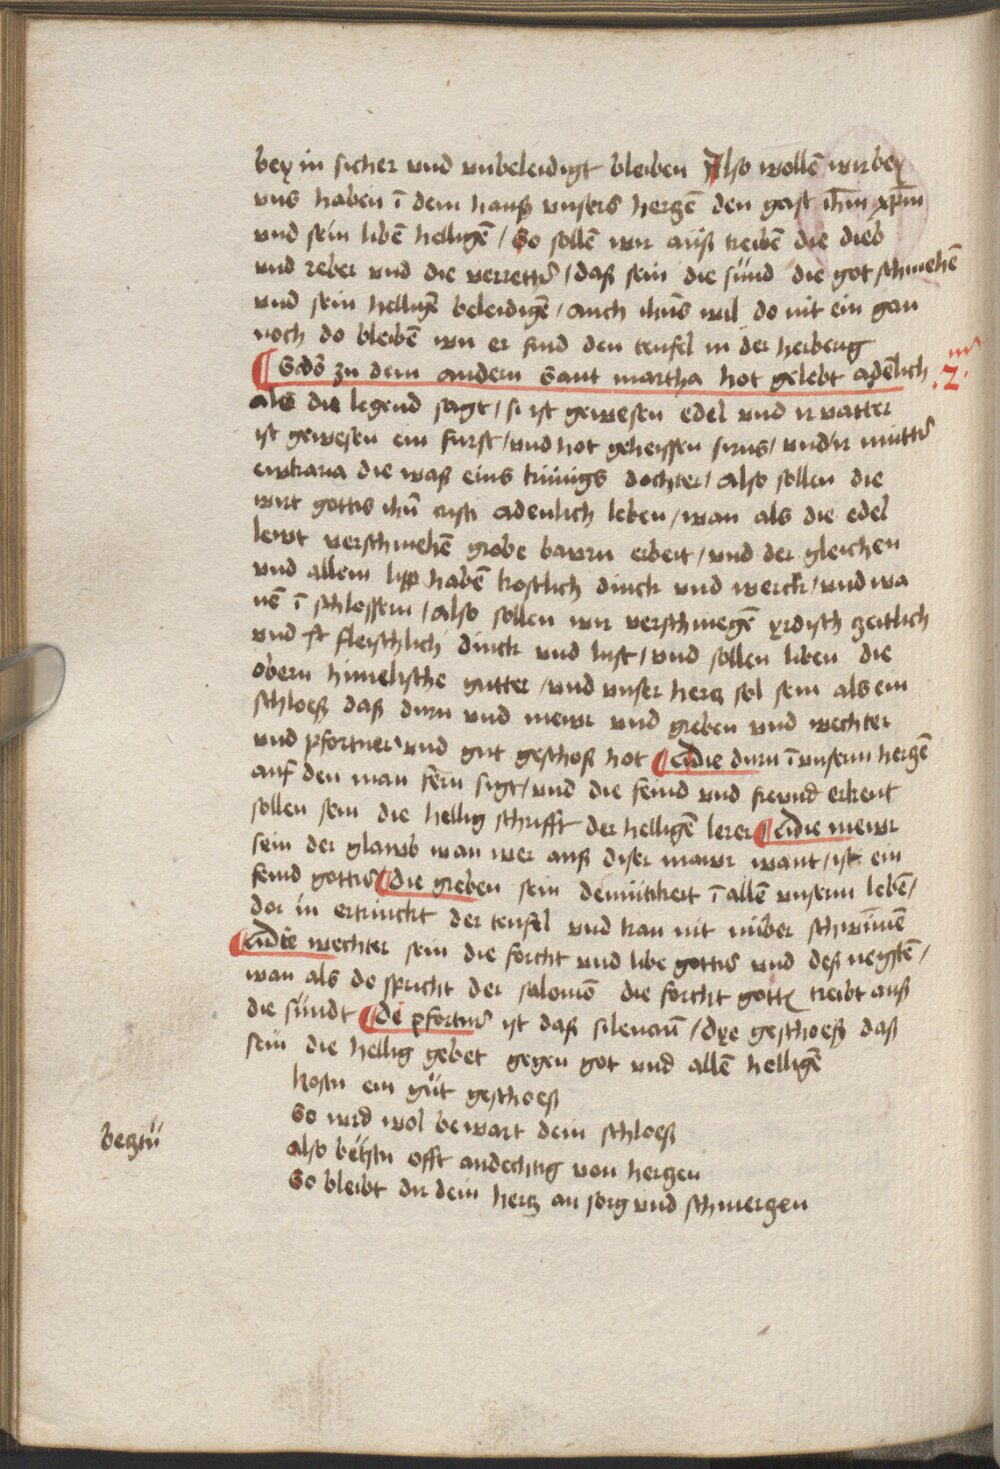 bey in sicher vnd vnbeleidigt bleiben Also wollē wir bey
vns haben ī dem hauß vnsers herczē den gast ihm̄ xp̄m
vnd sein libē helligē / So sollē wir auß treibē die dieb
vnd reber vnd die verretter / daß sein die sünd die got schmehē
vnd sein helligē beleidigē / auch ihūs wil do nit ein gan
noch do bleibē wu er find den teufel in der herberg
zu dem andern Sant martha hot gelebt adēlich
2
als die legend sagt / si ist gewesen edel vnd ir vatter
ist gewesen ein furst / vnd hot geheissen sirus / vnd ir mutter
die waß eins künigs dochter / also sollen die
wirt gottis ihū cristi adenlich leben / wan als die edel
lewt verschmehē grobe bawrn erbeit / vnd der gleichen
vnd allein habē kostlich dinck vnd werck / vnd wa
nē ī schlossern / also sollen wir verschmegē yrdisch zeitlich
vnd fleischlich dinck vnd lust / vnd sollen liben die
obern himelische gutter / vnd vnser hercz sol sein als ein
schloeß daß durn vnd mewr vnd greben vnd wechter
vnd pfortner vnd gut geschoß hot die durn ī vnserm herczē
auf den man fern sigt / vnd die feind vnd frewnd erkent
sollen sein die hellig schrifft der helligē lerer die mewr
sein der glawb wan wer auß diser mawr want / ist ein
feind gottis die greben sein demütikeit ī allē vnserm lebē /
dor in ertrinckt der teufel vnd kan nit nüber schwīmē
die wechter sein die forcht vnd libe gottis vnd deß negstē /
wan als do spricht der salomō die forcht gottz treibt auß
die sündt de pfortner ist daß silenciū / dye geschoeß daß
sein die hellig gebet gegen got vnd allē helligē
hostu ein gůt geschoeß
So wird wol bewart dein schloeß
also betzstu offt andechtig von herczen
So bleibt dir dein hercz an sorg vnd schmerczen